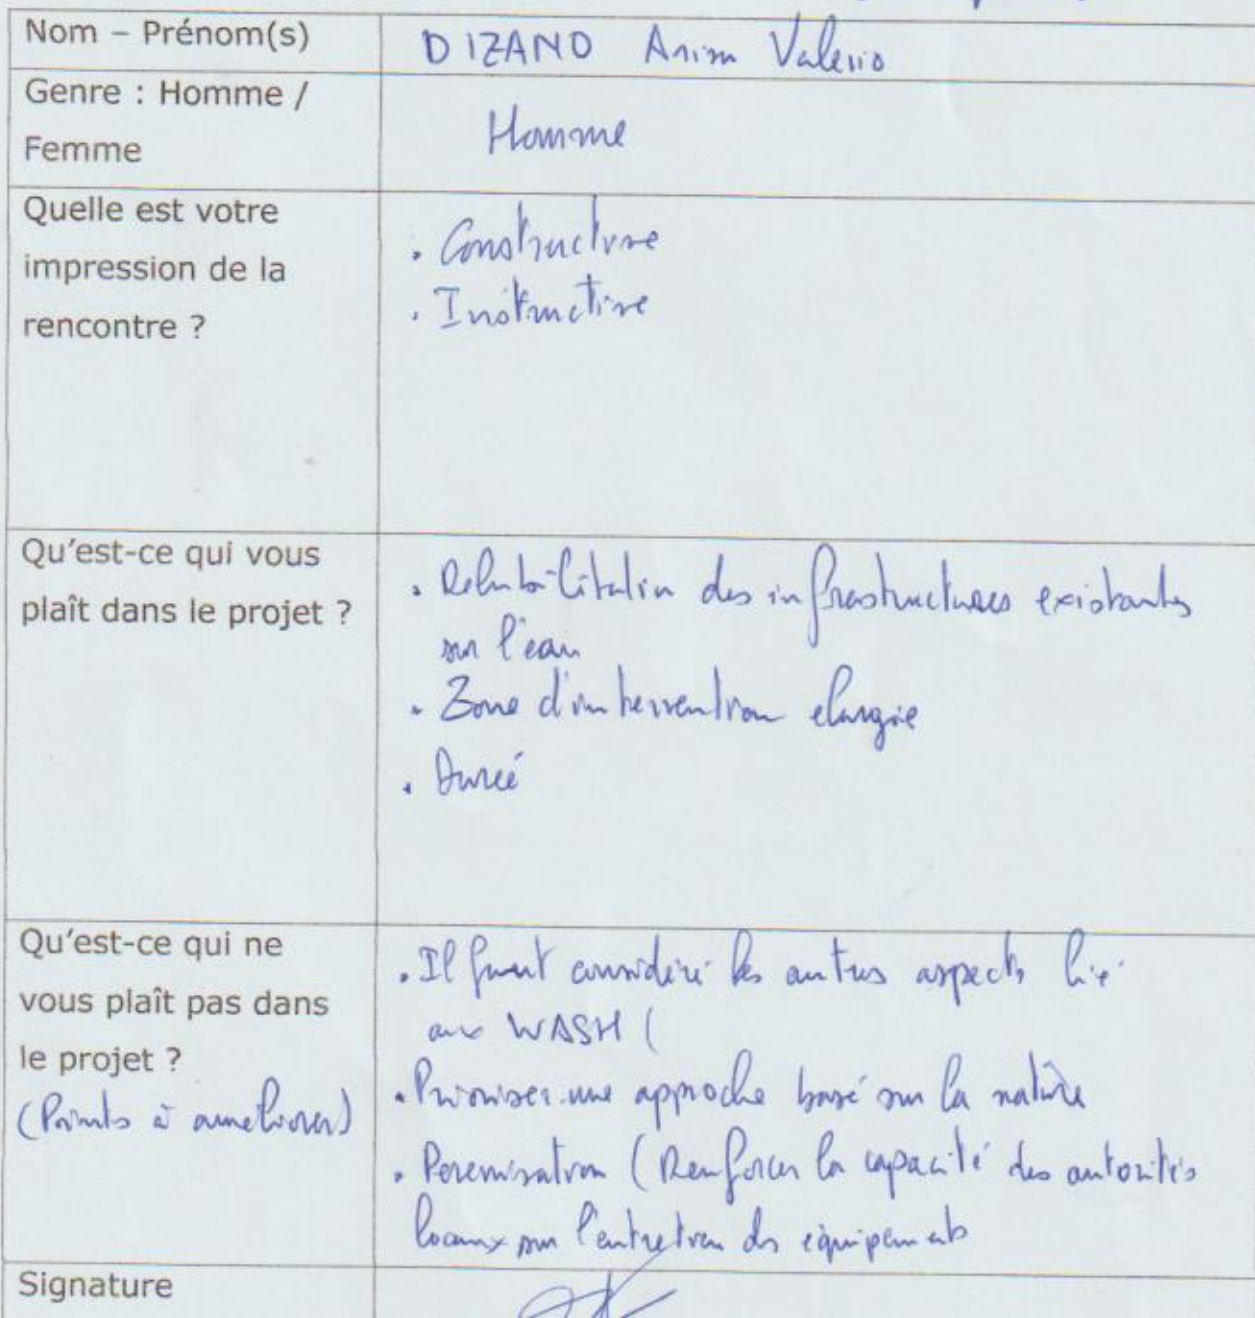 Nom – Prénom(s)
DIZANO Anim Valerio
Genre : Homme /
Femme
Homme
Quelle est votre
impression de la
rencontre ?
. Constructive
. Instructive
Qu'est-ce qui vous
plaît dans le projet ?
. Rehabilitation des infrastructures existants
sur l'eau
. Zone d'intervention elargie
. Dureé
Qu'est-ce qui ne
vous plaît pas dans
le projet ?
(Points à ameliorer)
. Il faut considéré les autres aspects lié
aux WASH (
. Prioriser une approche basé sur la nature
. Perenisation (Renforcer la capacité des autorités
locaux sur l'entretien des équipements
Signature